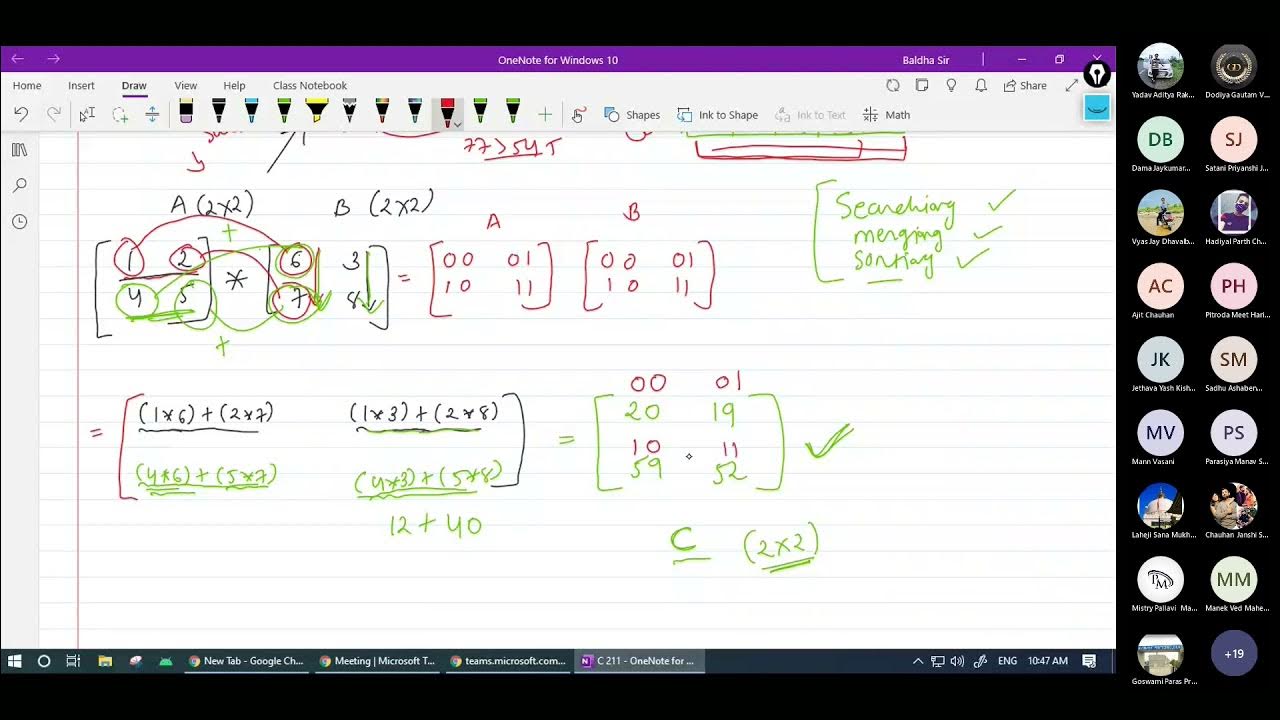 OneNote for Windows 10
Baldha Sir
Home Insert Draw View Help Class Notebook
Share
Shapes Ink to Shape Ink to Text Math
77 > 54 T
A (2×2) B (2×2)
A B
+
1 2 * 6 3 = 00 01 00 01
4 5 7 8 10 11 10 11
+
Searching ✓
merging ✓
sorting ✓
00 01
= (1*6)+(2*7) (1*3)+(2*8) = 20 19 ✓
10 11
(4*6)+(5*7) (4*3)+(5*8) 59 52
12 + 40
C (2×2)
New Tab - Google Ch...
Meeting | Microsoft T...
teams.microsoft.com...
C 211 - OneNote for ...
ENG 10:47 AM
Yadav Aditya Rak...
Dodiya Gautam V...
DB
SJ
Dama Jaykumar...
Satani Priyanshi J...
Vyas Jay Dhavalb...
Hadiyal Parth Ch...
AC
PH
Ajit Chauhan
Pitroda Meet Hari...
JK
SM
Jethava Yash Kish...
Sadhu Ashaben...
MV
PS
Mann Vasani
Parasiya Manav S...
Laheji Sana Mukh...
Chauhan Janshi S...
MM
Mistry Pallavi Ma...
Manek Ved Mahe...
+19
Goswami Paras Pr...